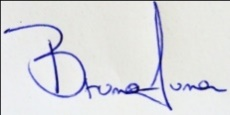 Bruna Luna